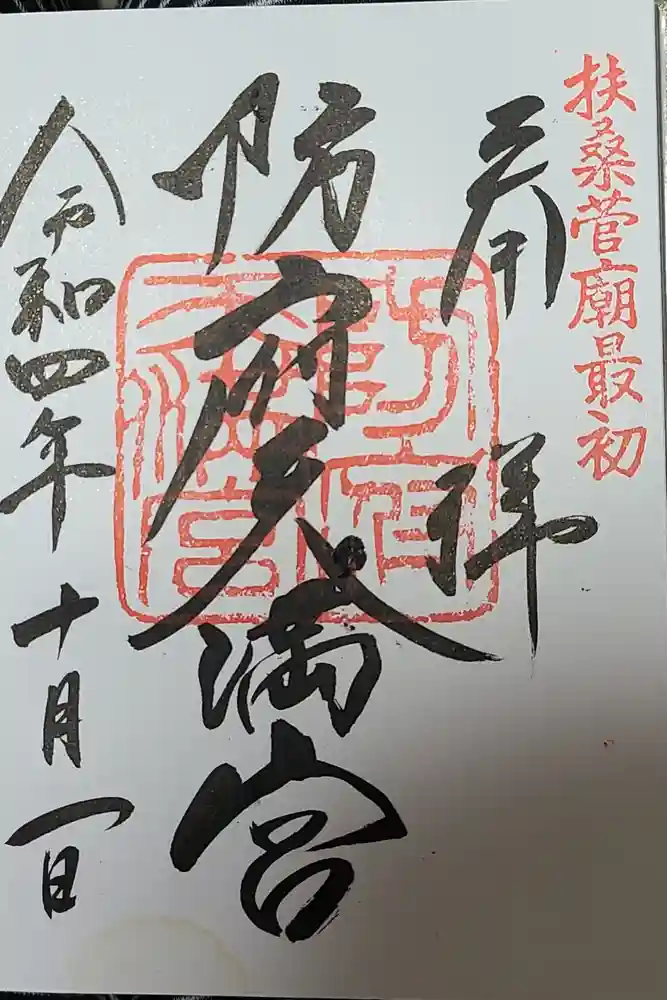 扶桑菅廟最初
奉拝
防府天満宮
令和四年十月一日